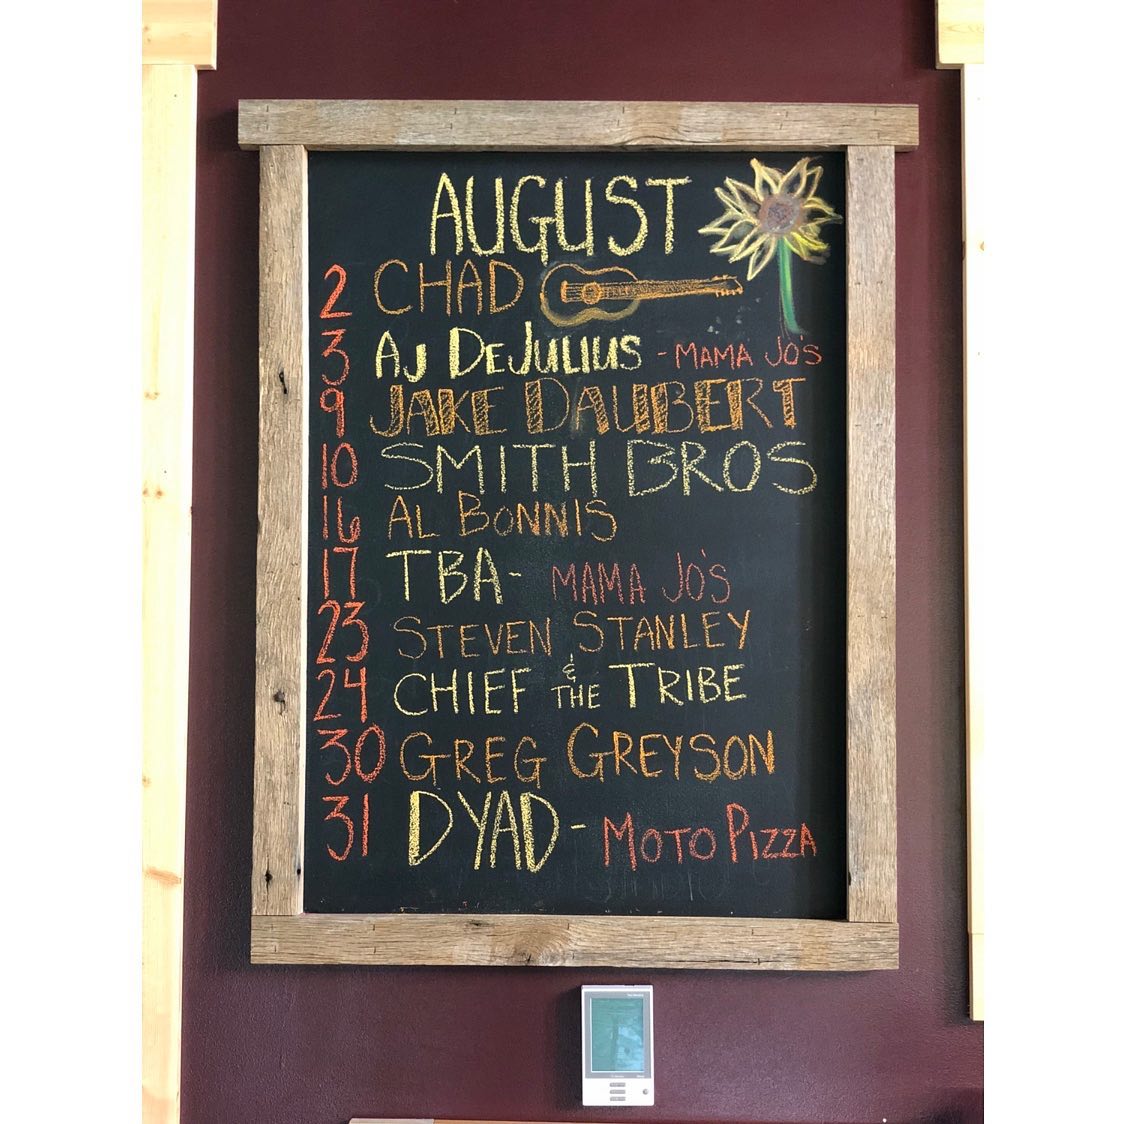 AUGUST
2 CHAD
3 AJ DEJULIUS - MAMA JO'S
9 JAKE DAUBERT
10 SMITH BROS
16 AL BONNIS
17 TBA - MAMA JO'S
23 STEVEN STANLEY
24 CHIEF & THE TRIBE
30 GREG GREYSON
31 DYAD - MOTO PIZZA